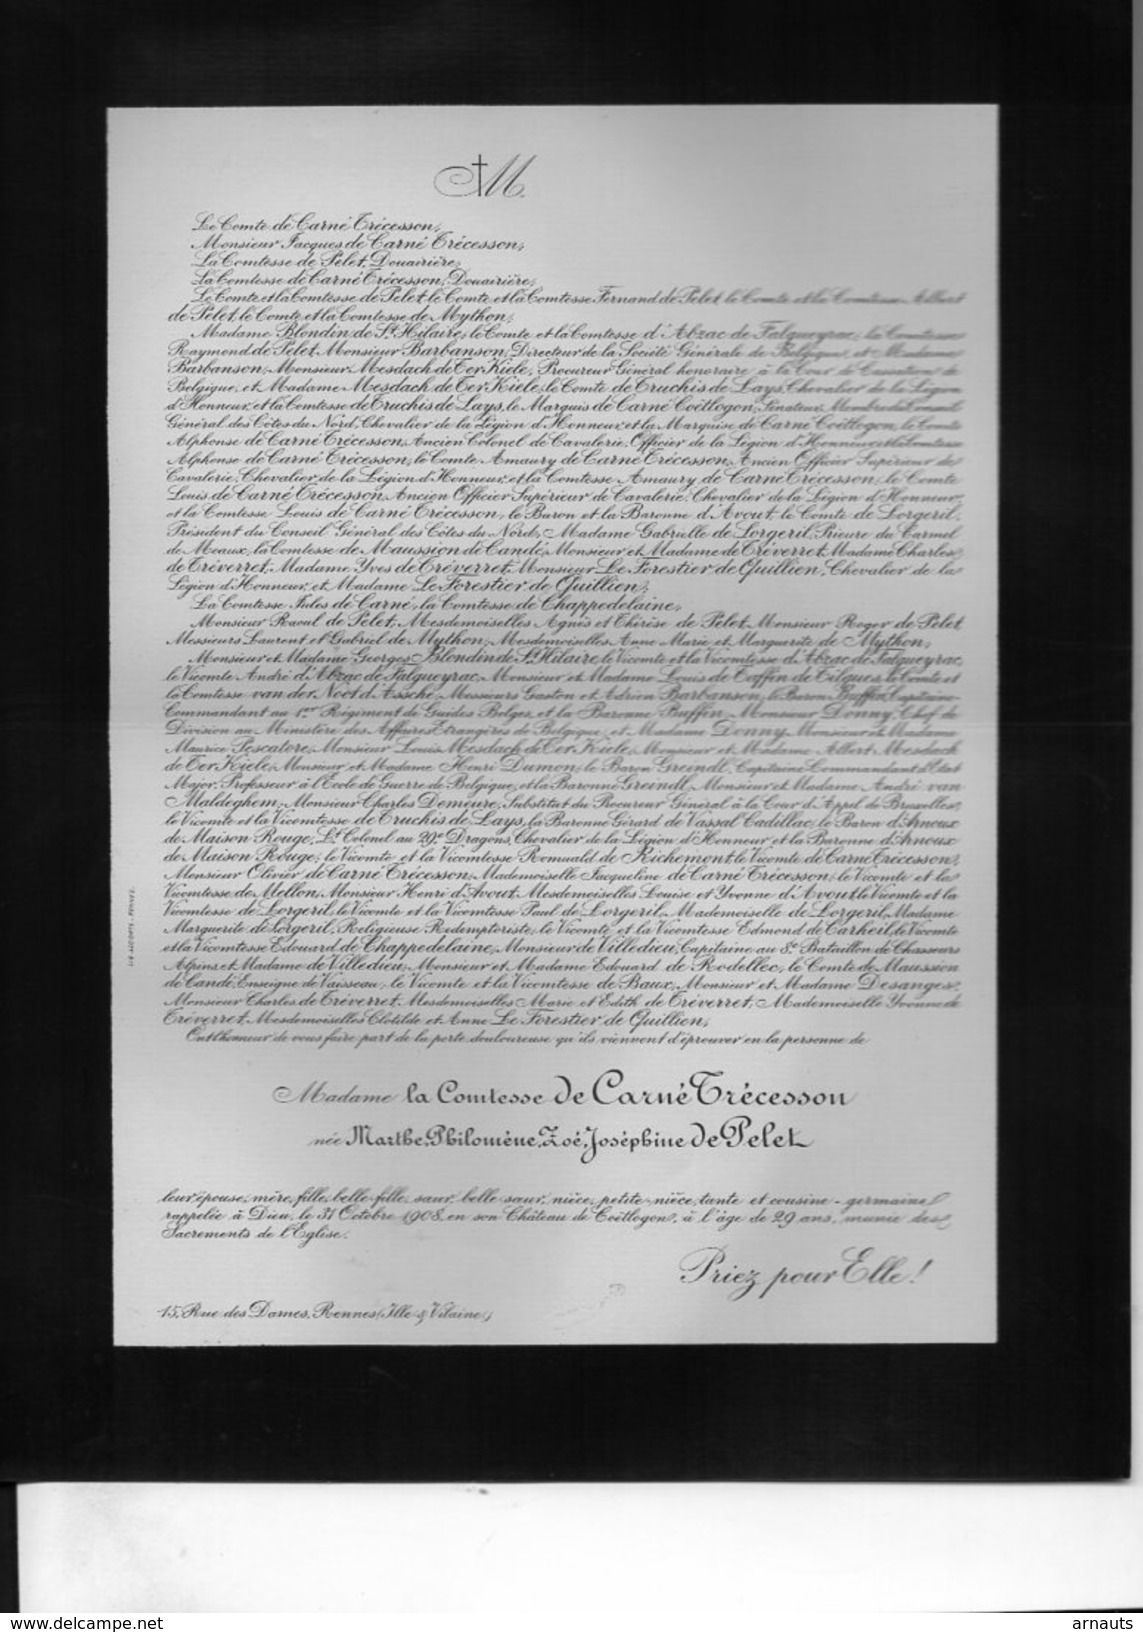 M.
Le Comte de Carné Trécesson,
Monsieur Jacques de Carné Trécesson,
La Comtesse de Pelet, Douairière,
La Comtesse de Carné Trécesson, Douairière,
Le Comte et la Comtesse de Pelet, le Comte et la Comtesse Fernand de Pelet, le Comte et la Comtesse Albert
de Pelet, le Comte et la Comtesse de Mython,
Madame Blondin de St Hilaire, le Comte et la Comtesse d'Abzac de Falgueyrac, la Comtesse
Raymond de Pelet, Monsieur Barbanson, Directeur de la Société Générale de Belgique, et Madame
Barbanson, Monsieur Mesdach de Ter Kiele, Procureur Général honoraire à la Cour de Cassation de
Belgique, et Madame Mesdach de Ter Kiele, le Comte de Truchis de Lays, Chevalier de la Légion
d'Honneur, et la Comtesse de Truchis de Lays, le Marquis de Carné Coëtlogon, Sénateur, Membre du Conseil
Général des Côtes du Nord, Chevalier de la Légion d'Honneur, et la Marquise de Carné Coëtlogon, le Comte
Alphonse de Carné Trécesson, Ancien Colonel de Cavalerie, Officier de la Légion d'Honneur et la Comtesse
Alphonse de Carné Trécesson, le Comte Amaury de Carné Trécesson, Ancien Officier Supérieur de
Cavalerie, Chevalier de la Légion d'Honneur, et la Comtesse Amaury de Carné Trécesson, le Comte
Louis de Carné Trécesson, Ancien Officier Supérieur de Cavalerie, Chevalier de la Légion d'Honneur,
et la Comtesse Louis de Carné Trécesson, le Baron et la Baronne d'Avout, le Comte de Lorgeril,
Président du Conseil Général des Côtes du Nord, Madame Gabrielle de Lorgeril, Prieure du Carmel
de Meaux, la Comtesse de Maussion de Candé, Monsieur et Madame de Tréverret, Madame Charles
de Tréverret, Madame Yves de Tréverret, Monsieur Le Forestier de Quillien, Chevalier de la
Légion d'Honneur, et Madame Le Forestier de Quillien,
La Comtesse Jules de Carné, la Comtesse de Chappedelaine,
Monsieur Raoul de Pelet, Mesdemoiselles Agnès et Thérèse de Pelet, Monsieur Roger de Pelet
Messieurs Laurent et Gabriel de Mython, Mesdemoiselles Anne Marie et Marguerite de Mython,
Monsieur et Madame Georges Blondin de St Hilaire, le Vicomte et la Vicomtesse d'Abzac de Falgueyrac,
le Vicomte André d'Abzac de Falgueyrac, Monsieur et Madame Louis de Taffin de Tilques, le Comte et
la Comtesse van der Noot d'Assche, Messieurs Gaston et Adrien Barbanson, le Baron Buffin, Capitaine
Commandant au 1er Régiment de Guides Belges, et la Baronne Buffin, Monsieur Donny, Chef de
Division au Ministère des Affaires Etrangères de Belgique, et Madame Donny, Monsieur et Madame
Maurice Pescatore, Monsieur Louis Mesdach de Ter Kiele, Monsieur et Madame Albert Mesdach
de Ter Kiele, Monsieur et Madame Henri Dumon, le Baron Greindl, Capitaine Commandant d'Etat
Major, Professeur à l'Ecole de Guerre de Belgique, et la Baronne Greindl, Monsieur et Madame André van
Maldeghem, Monsieur Charles Demeure, Substitut du Procureur Général à la Cour d'Appel de Bruxelles,
le Vicomte et la Vicomtesse de Truchis de Lays, la Baronne Gérard de Vassal Cadillac, le Baron d'Arnoux
de Maison Rouge, Lt Colonel au 29e Dragons, Chevalier de la Légion d'Honneur et la Baronne d'Arnoux
de Maison Rouge, le Vicomte et la Vicomtesse Romuald de Richemont, le Vicomte de Carné Trécesson,
Monsieur Olivier de Carné Trécesson, Mademoiselle Jacqueline de Carné Trécesson, le Vicomte et la
Vicomtesse de Mellon, Monsieur Henri d'Avout, Mesdemoiselles Louise et Yvonne d'Avout, le Vicomte et la
Vicomtesse de Lorgeril, le Vicomte et la Vicomtesse Paul de Lorgeril, Mademoiselle de Lorgeril, Madame
Marguerite de Lorgeril, Religieuse Rédemptoriste, le Vicomte et la Vicomtesse Edmond de Carheil, le Vicomte
et la Vicomtesse Edouard de Chappedelaine, Monsieur de Villedieu, Capitaine au 8e Bataillon de Chasseurs
Alpins, et Madame de Villedieu, Monsieur et Madame Edouard de Rodellec, le Comte de Maussion
de Candé, Enseigne de Vaisseau, le Vicomte et la Vicomtesse de Baux, Monsieur et Madame Desanges,
Monsieur Charles de Tréverret, Mesdemoiselles Marie et Edith de Tréverret, Mademoiselle Yvonne de
Tréverret, Mesdemoiselles Clotilde et Anne Le Forestier de Quillien,
Ont l'honneur de vous faire part de la perte douloureuse qu'ils viennent d'éprouver en la personne de
Madame la Comtesse de Carné Trécesson
née Marthe, Philomène, Zoé, Joséphine de Pelet
leur épouse, mère, fille, belle-fille, sœur, belle-sœur, nièce, petite-nièce, tante et cousine-germaine,
rappelée à Dieu, le 31 Octobre 1908, en son Château de Coëtlogon, à l'âge de 29 ans, munie des
Sacrements de l'Eglise.
Priez pour Elle!
15, Rue des Dames, Rennes (Ille & Vilaine)
delcampe.net
arnauts